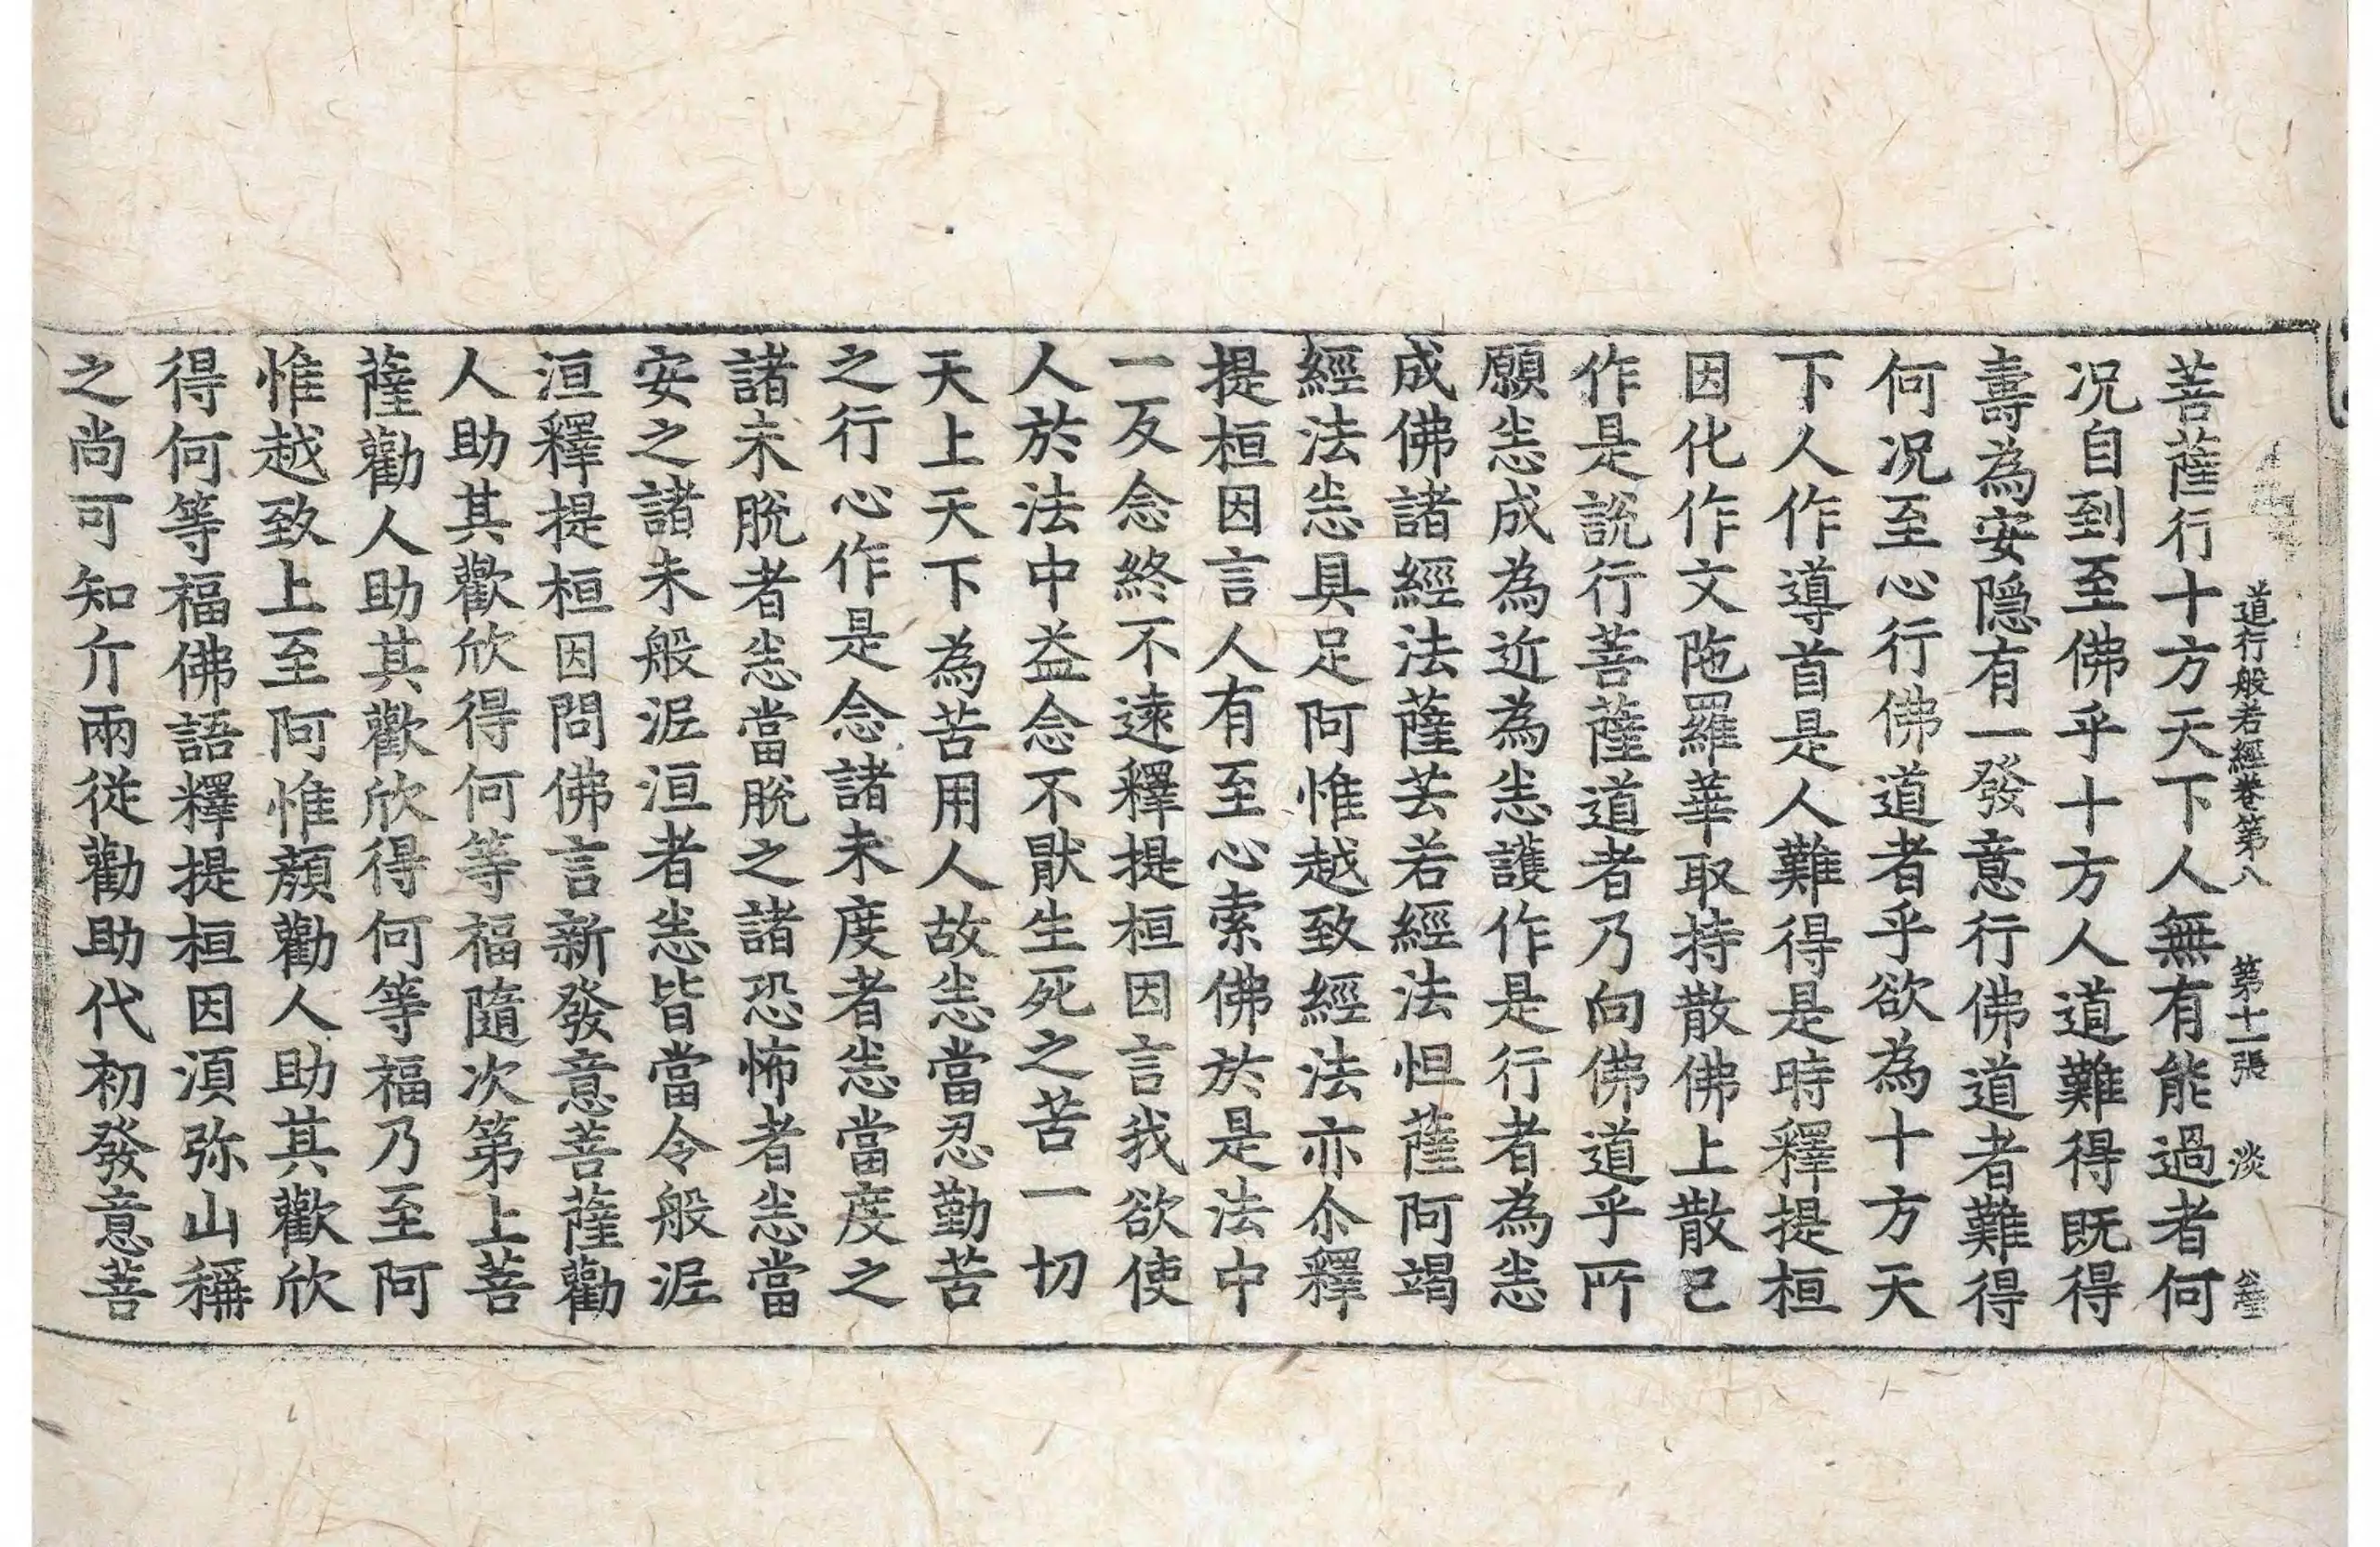 道行般若經卷第八 第十一張 淡
菩薩行十方天下人無有能過者何
况自到至佛乎十方人道難得既得
壽為安隱有一發意行佛道者難得
何况至心行佛道者乎欲為十方天
下人作導首是人難得是時釋提桓
因化作文陁羅華取持散佛上散已
作是說行菩薩道者乃向佛道乎所
願悉成為近為悉護作是行者為悉
成佛諸經法薩芸若經法怛薩阿竭
經法悉具足阿惟越致經法亦尒釋
提桓因言人有至心索佛於是法中
一反念終不遠釋提桓因言我欲使
人於法中益念不猒生死之苦一切
天上天下為苦用人故悉當忍勤苦
之行心作是念諸未度者悉當度之
諸未脫者悉當脫之諸恐怖者悉當
安之諸未般泥洹者悉皆當令般泥
洹釋提桓因問佛言新發意菩薩勸
人助其歡欣得何等福隨次第上菩
薩勸人助其歡欣得何等福乃至阿
惟越致上至阿惟顏勸人助其歡欣
得何等福佛語釋提桓因湏弥山稱
之尚可知斤兩從勸助代初發意菩